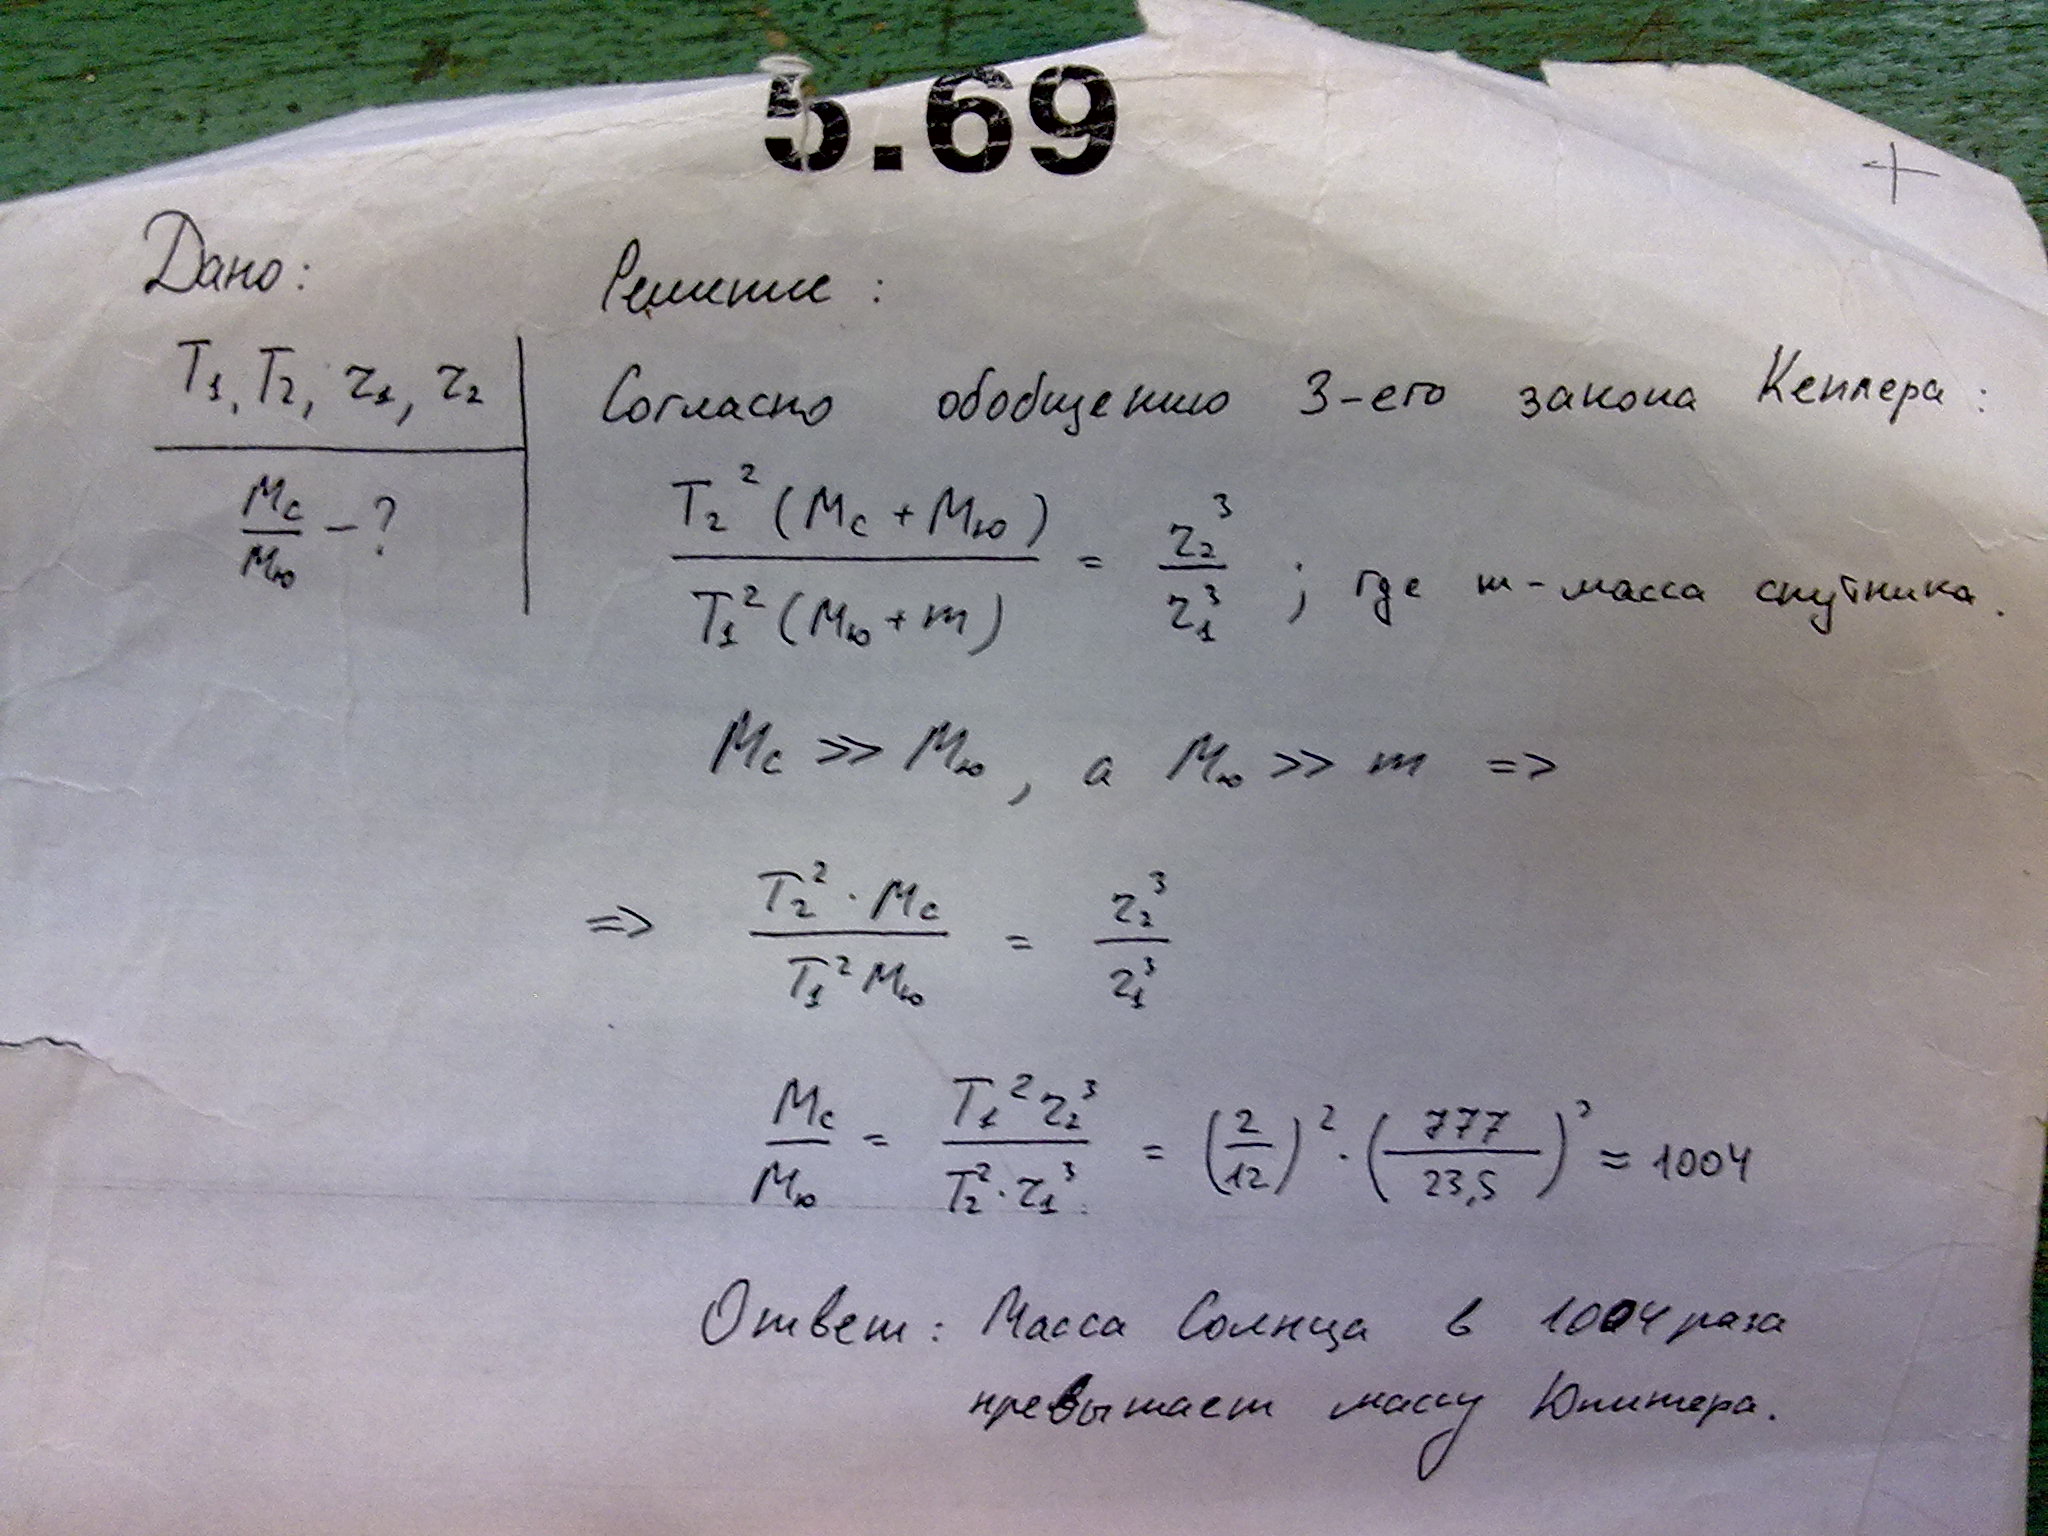 5.69
+
Дано:
Решение:
T₁, T₂, r₁, r₂
Mс/Mю - ?
Согласно обобщению 3-его закона Кеплера:
T₂²(Mс + Mю) / T₁²(Mю + m) = r₂³ / r₁³ ; где m - масса спутника.
Mс >> Mю, а Mю >> m =>
=> T₂² · Mс / T₁² Mю = r₂³ / r₁³
Mс / Mю = T₁² r₂³ / T₂² · r₁³ = (2/12)² · (777/23,5)³ ≈ 1004
Ответ: Масса Солнца в 1004 раза
превышает массу Юпитера.